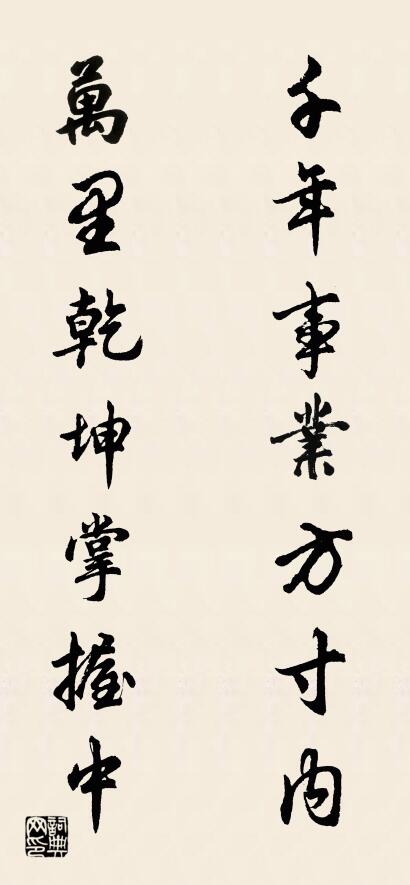 千年事業方寸內
萬里乾坤掌握中
詞典
网印